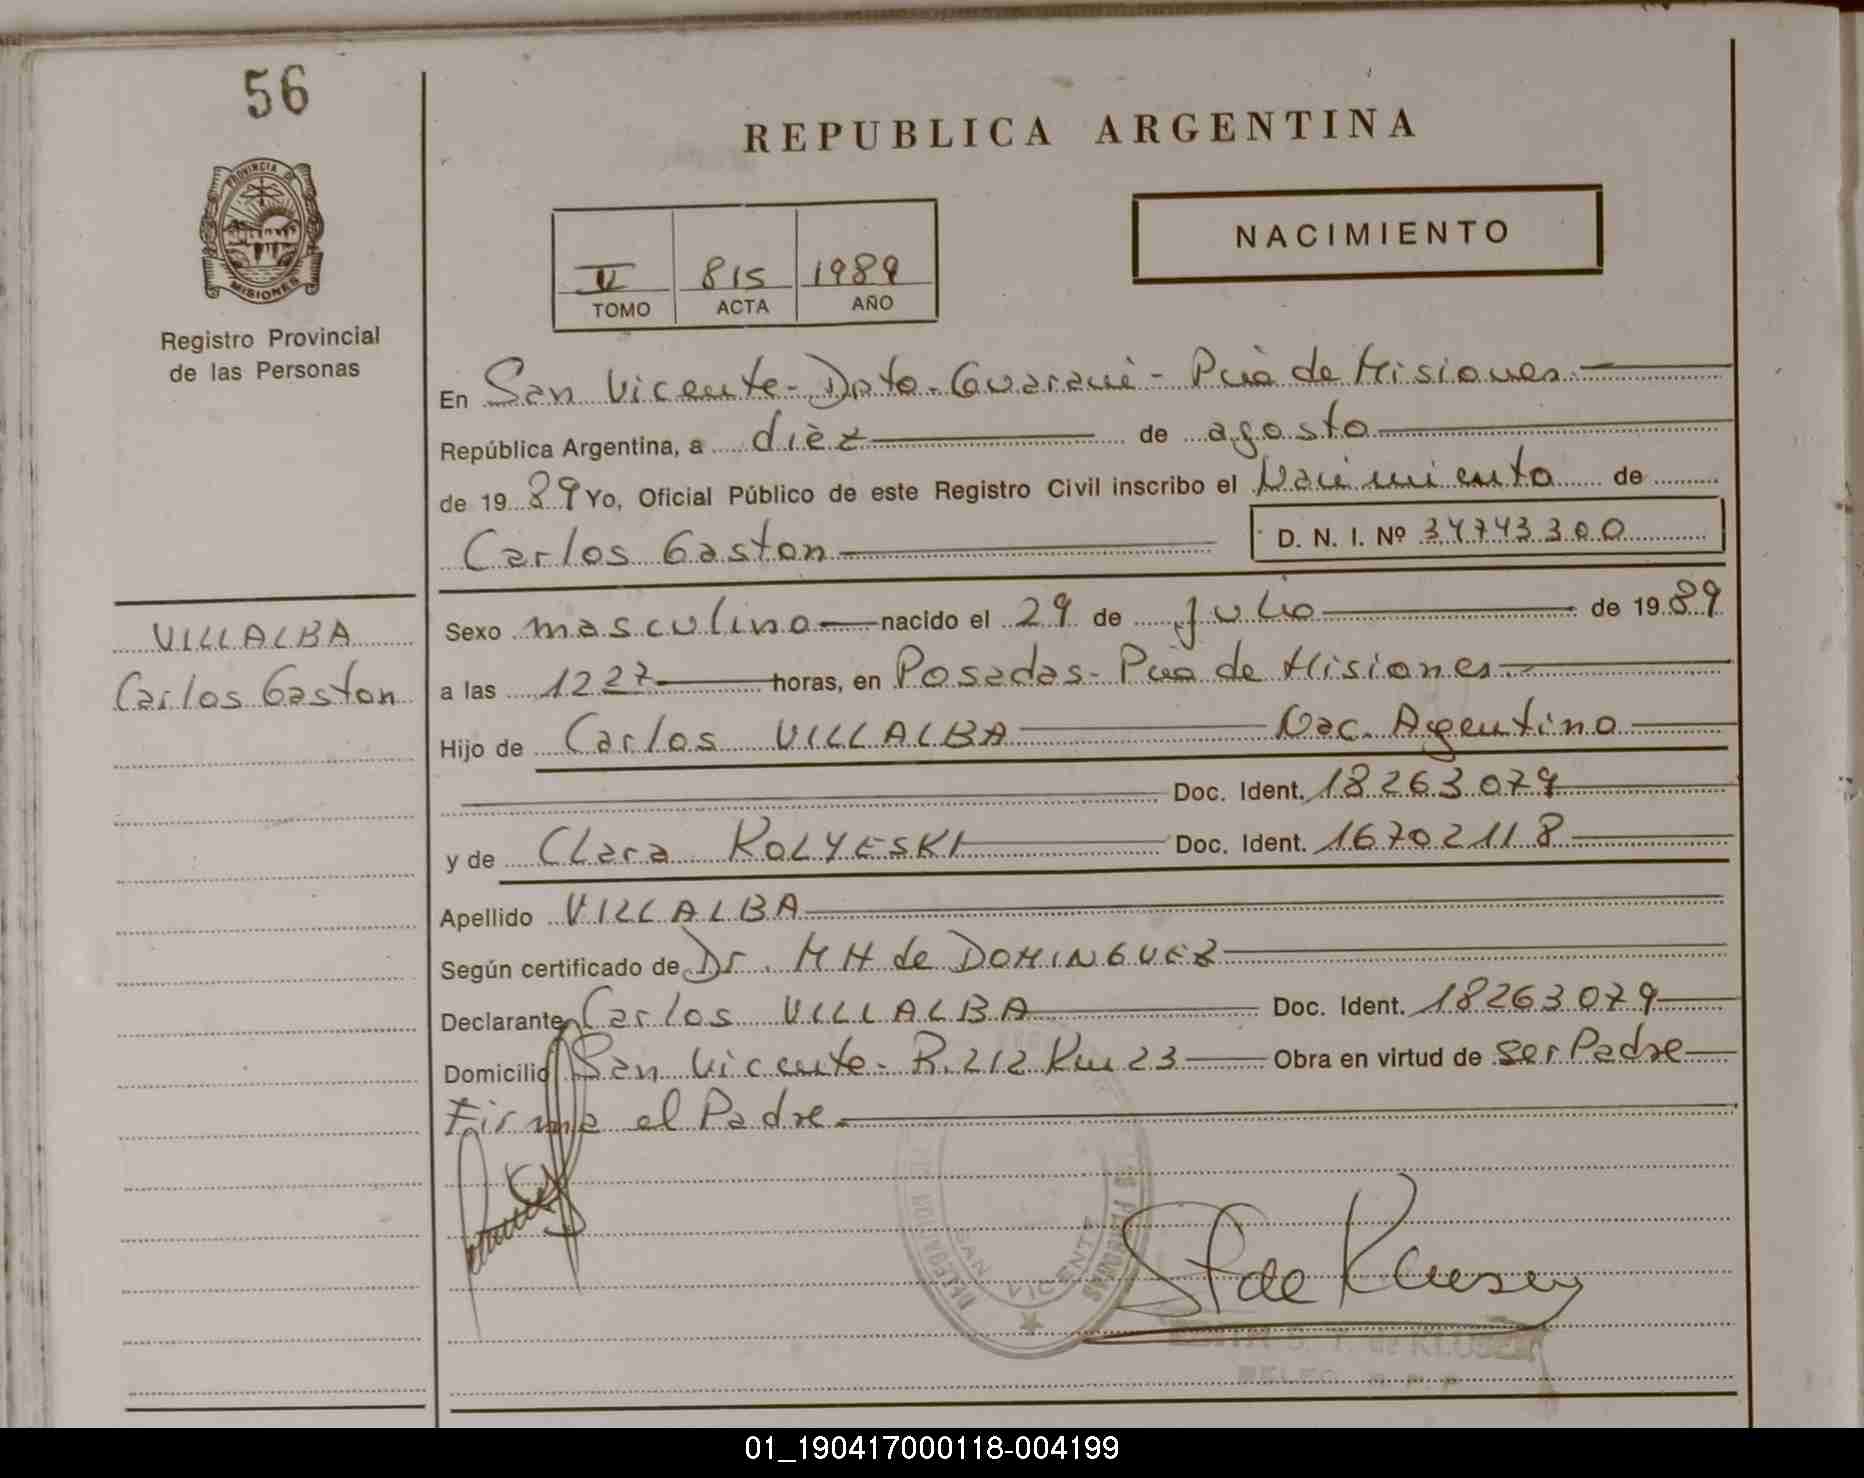 56
REPUBLICA ARGENTINA
PROVINCIA DE
MISIONES
Registro Provincial
de las Personas
II 815 1989
TOMO ACTA AÑO
NACIMIENTO
En San Vicente - Dpto. Guaraní - Pcia de Misiones.
República Argentina, a diez de agosto
de 1989 Yo, Oficial Público de este Registro Civil inscribo el Nacimiento de
Carlos Gaston D. N. I. Nº 34743300
VILLALBA
Carlos Gaston
Sexo masculino nacido el 29 de julio de 1989
a las 1227 horas, en Posadas - Pcia de Misiones.
Hijo de Carlos VILLALBA Nac. Argentino
Doc. Ident. 18263079
y de Clara KOLYESKI Doc. Ident. 16702118
Apellido VILLALBA
Según certificado de Dr. M H de DOMINGUEZ
Declarante Carlos VILLALBA Doc. Ident. 18263079
Domicilio San Vicente - R. 212 Km 23 Obra en virtud de ser Padre
Firma el Padre.
DELEGACION
SAN VICENTE
LAS PERSONAS
S T de Kluser
S. T. de KLUSER
DELEG. R. P. P.
01_190417000118-004199